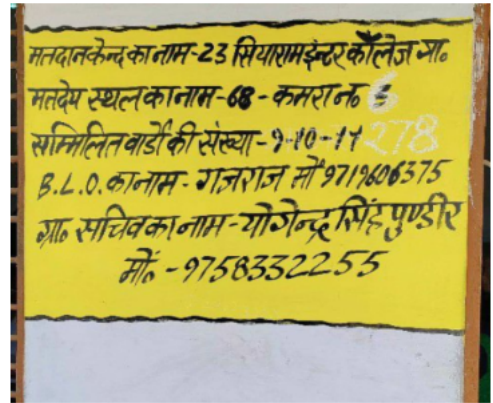 मतदानकेन्द्र का नाम-23 सियाराम इन्टर कॉलेज ग्रा०
मतदेय स्थल का नाम-68-कमरा नं० 6
सम्मिलित वार्डो की संख्या-9-10-11 278
B.L.O. का नाम- गजराज मों 9719606375
ग्रा० सचिव का नाम-योगेन्द्र सिंह पुण्डीर
मों०-9758332255